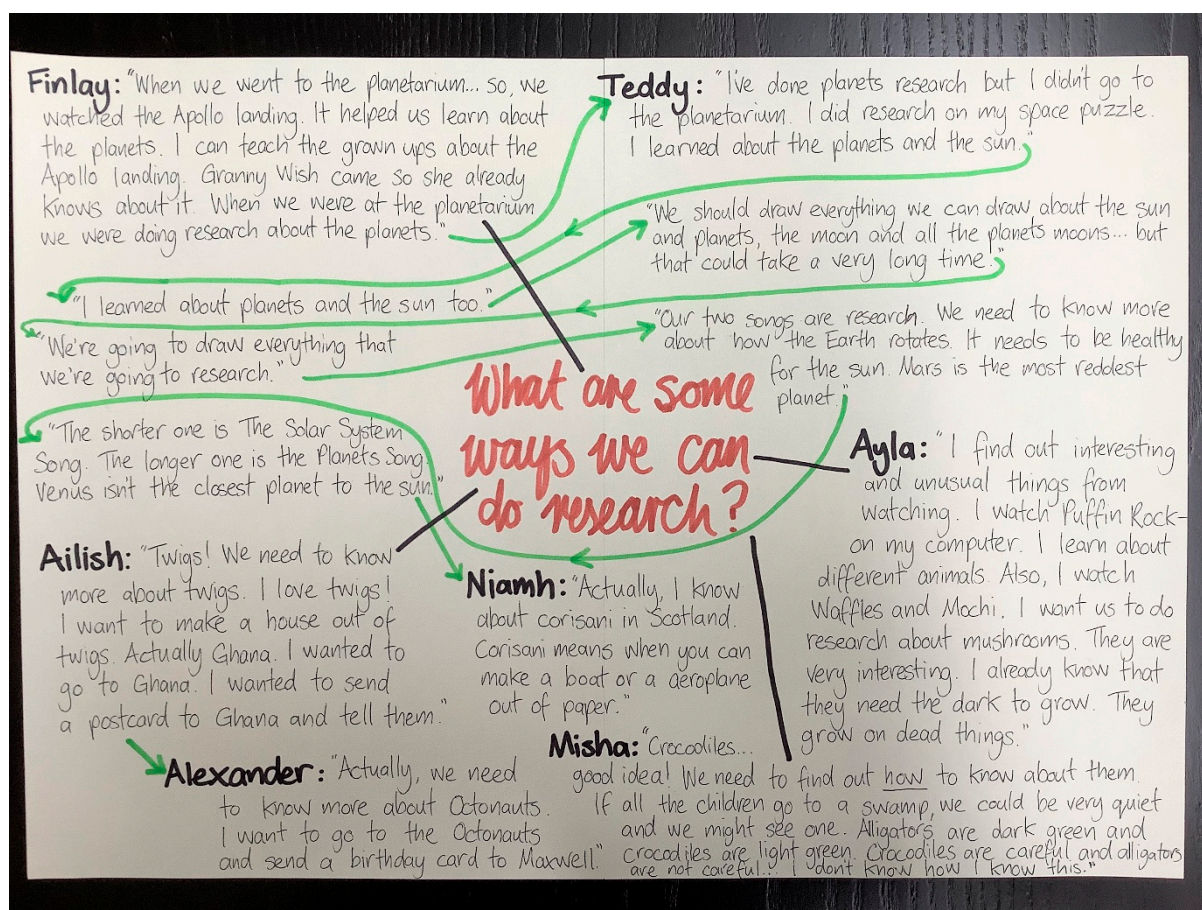 Finlay: "When we went to the planetarium... so, we
watched the Apollo landing. It helped us learn about
the planets. I can teach the grown ups about the
Apollo landing. Granny Wish came so she already
knows about it. When we were at the planetarium
we were doing research about the planets."
Teddy: "I've done planets research but I didn't go to
the planetarium. I did research on my space puzzle.
I learned about the planets and the sun."
"I learned about planets and the sun too."
"We should draw everything we can draw about the sun
and planets, the moon and all the planets moons... but
that could take a very long time!"
"We're going to draw everything that
we're going to research."
"Our two songs are research. We need to know more
about how the Earth rotates. It needs to be healthy
for the sun. Mars is the most reddest
planet."
"The shorter one is The Solar System
Song. The longer one is the Planets Song.
Venus isn't the closest planet to the sun."
What are some
ways we can
do research?
Ayla: "I find out interesting
and unusual things from
watching. I watch Puffin Rock-
on my computer. I learn about
different animals. Also, I watch
Waffles and Mochi. I want us to do
research about mushrooms. They are
very interesting. I already know that
they need the dark to grow. They
grow on dead things."
Ailish: "Twigs! We need to know
more about twigs. I love twigs!
I want to make a house out of
twigs. Actually Ghana. I wanted to
go to Ghana. I wanted to send
a postcard to Ghana and tell them."
Niamh: "Actually, I know
about corisani in Scotland.
Corisani means when you can
make a boat or a aeroplane
out of paper."
Alexander: "Actually, we need
to know more about Octonauts.
I want to go to the Octonauts
and send a birthday card to Maxwell."
Misha: "Crocodiles...
good idea! We need to find out how to know about them.
If all the children go to a swamp, we could be very quiet
and we might see one. Alligators are dark green and
crocodiles are light green. Crocodiles are careful and alligators
are not careful... I don't know how I know this."